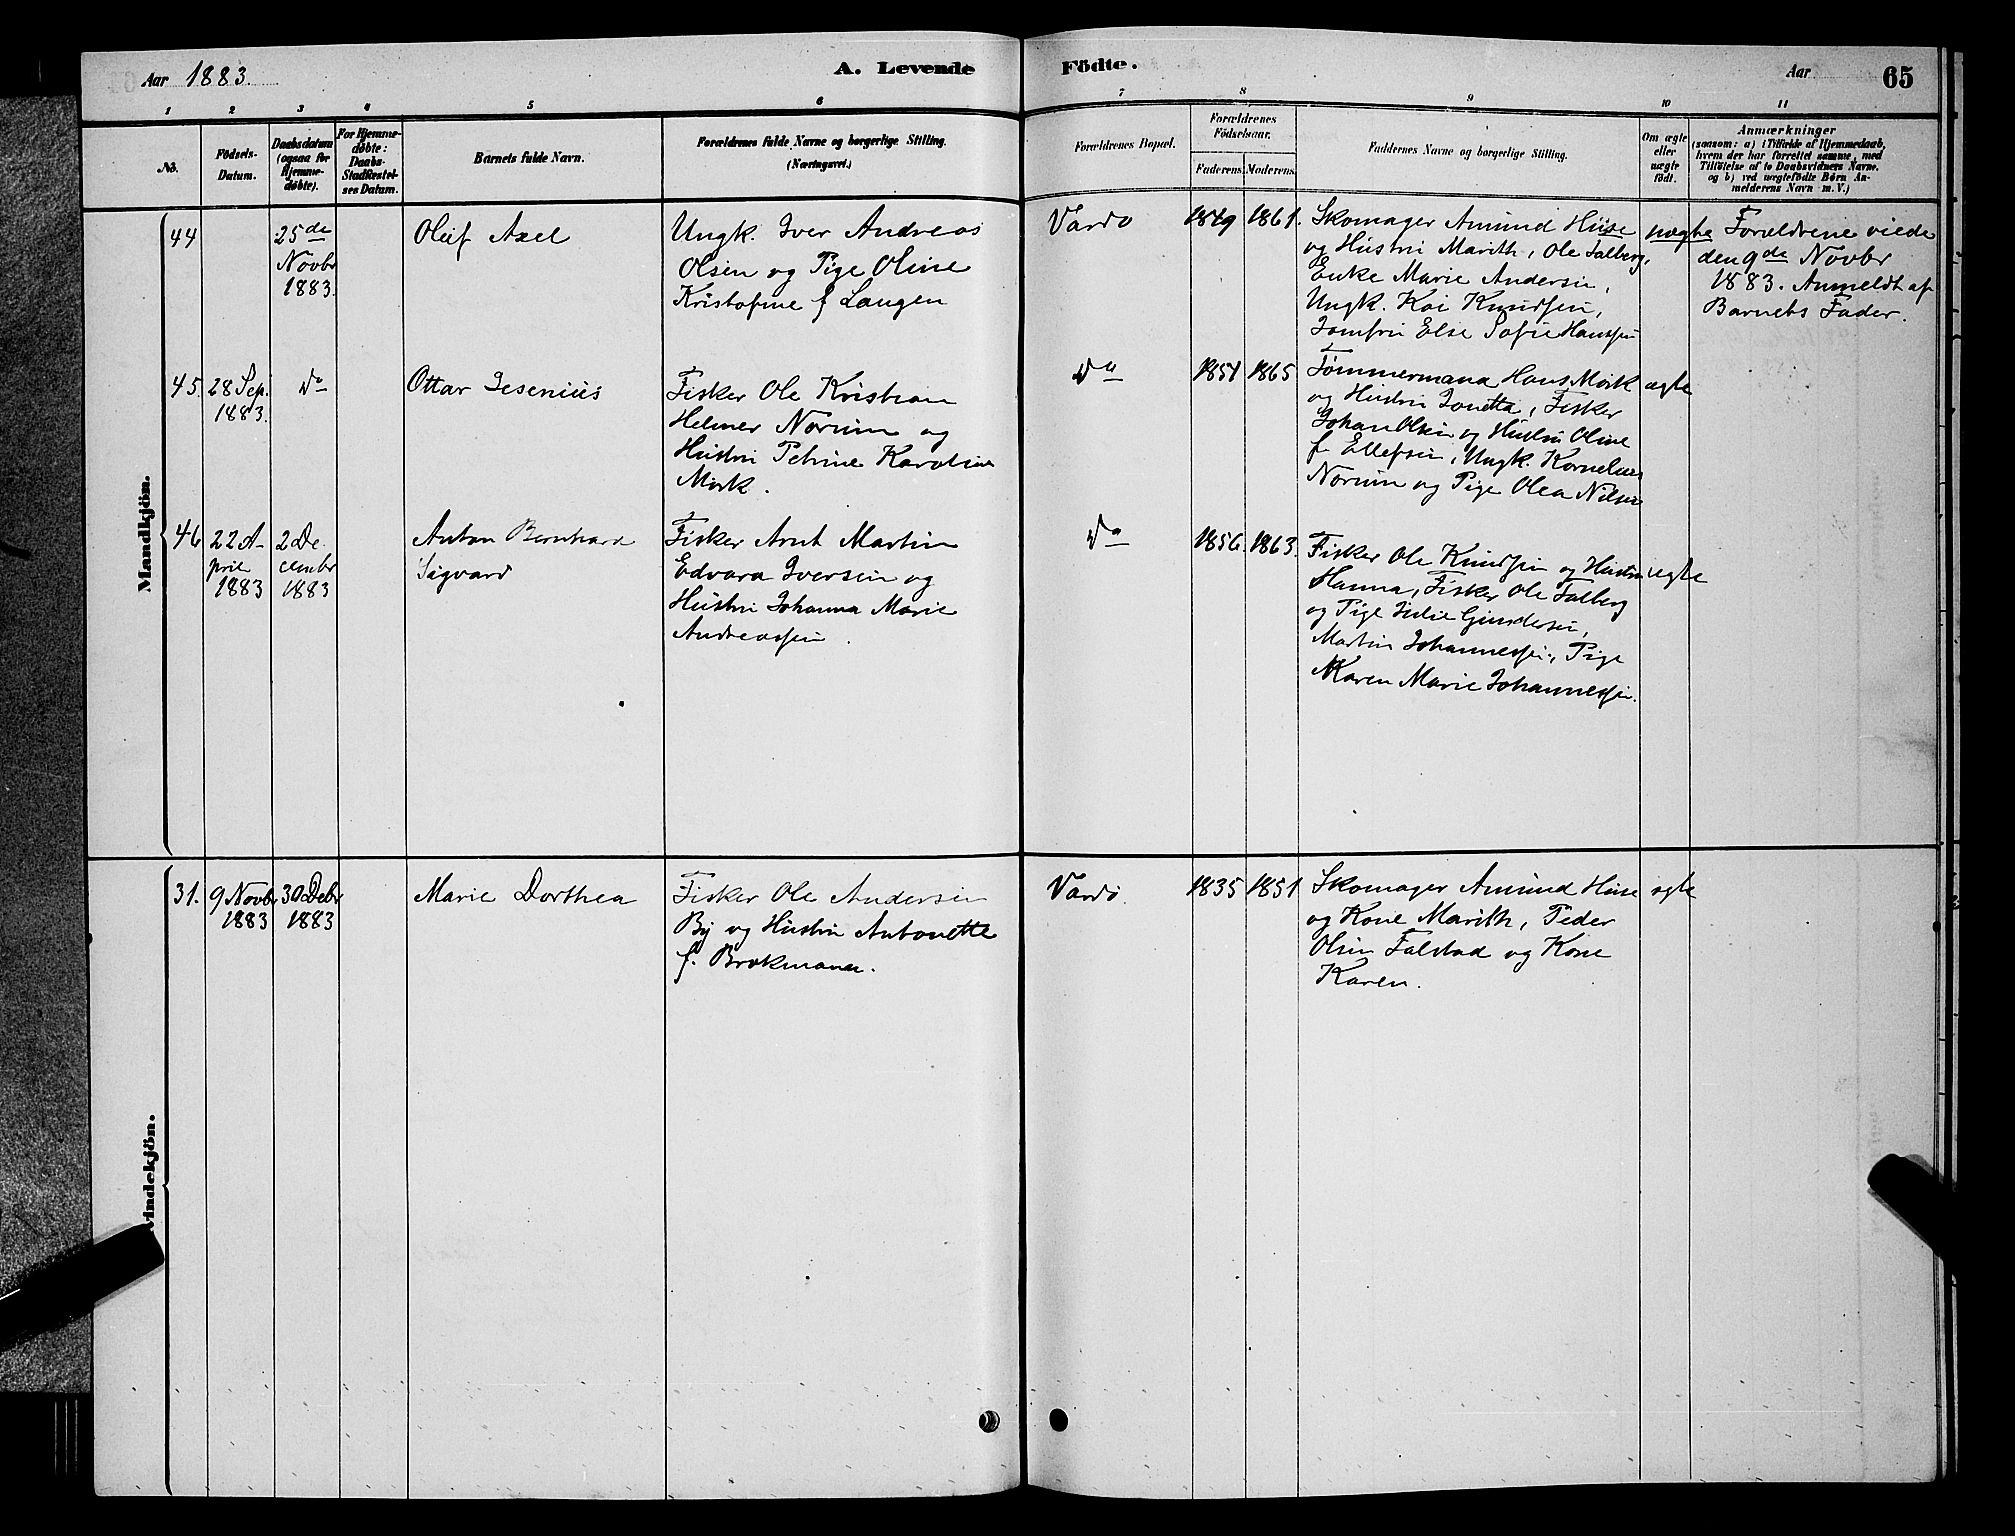 Aar 1883.
A. Levende
Födte.
Aar
65
1
2
3
4
5
6
7
8
9
10
11
No.
Födsels-
Datum.
Daabsdatum
(ogsaa for
Hjemme-
döbte).
For Hjemme-
döbte:
Daabs-
Stadfæstel-
ses Datum.
Barnets fulde Navn.
Forældrenes fulde Navne og borgerlige Stilling.
(Næringsvei.)
Forældrenes Bopæl.
Forældrenes
Födselsaar.
Faderens.
Moderens.
Faddernes Navne og borgerlige Stilling.
Om ægte
eller
uægte
født.
Anmærkninger
(saasom: a) i Tilfælde af Hjemmedaab,
hvem der har forrettet samme, med
Tilföielse af to Daabsvidners Navne,
og b) ved uægtefödte Börn An-
melderens Navn m. V.)
Mandkjön.
44
25de
Novbr
1883.
Oluf Axel
Ungk. Iver Andreas
Olsen og Pige Oline
Kristofine f Langen
Vardø
1849
1861.
Skomager Amund Huse
og Hustru Marith, Ole Falberg,
Enke Marie Andersen,
Ungk. Kai Knudsen,
Jomfru Else Sofie Hanssen
uægte
Forældrene viede
den 9de Novbr
1883. Anmeldt af
Barnets Fader.
45.
28 Sep.
1883.
Do
Ottar Jesenius
Fisker Ole Kristian
Helmer Norum og
Hustru Petrine Karoline
Mørk.
Do
1851
1865
Tømmermand Hans Mørk
og Hustru Jonetta, Fisker
Johan Olsen og Hustru Oline
f. Ellefsen, Ungk. Kornelius
Norum og Pige Olea Nilsen
ægte
46
22 A-
pril
1883
2 De-
cembr
1883
Anton Bernhard
Sigvard
Fisker Arnt Martin
Edvard Iversen og
Hustru Johanna Marie
Andreassen.
Do
1856.
1863.
Fisker Ole Knudsen og Hustru
Hanna, Fisker Ole Falberg
og Pige Julie Gundersen,
Martin Johannessen, Pige
Karen Marie Johannessen.
ægte
vindekjön.
31.
9 Novbr
1883
30 Debr
1883
Marie Dorthea
Fisker Ole Andersen
By og Hustru Antonette
f. Brokmann.
Vardø.
1835
1851
Skomager Amund Huse
og Kone Marith, Peder
Olsen Falstad og Kone
Karen.
ægte